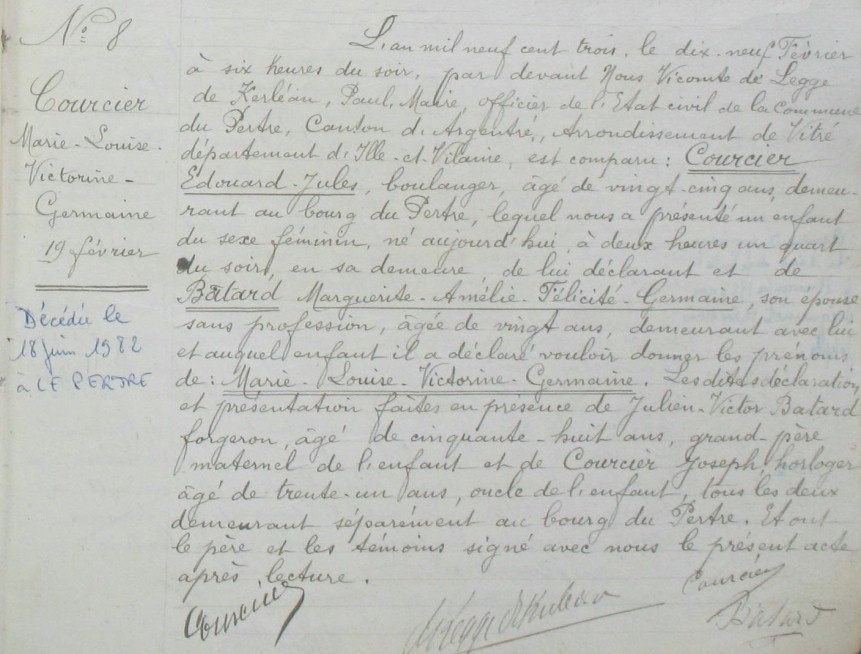 N° 8
Courcier
Marie-Louise-
Victorine-
Germaine
19 février
Décédée le
18 juin 1982
à LE PERTRE
L'an mil neuf cent trois, le dix-neuf Février
à six heures du soir, par devant Nous Vicomte de Legge
de Kerléan, Paul, Maire, officier de l'Etat civil de la commune
du Pertre, Canton d'Argentré, Arrondissement de Vitré
département d'Ille-et-Vilaine, est comparu : Courcier
Edouard-Jules, boulanger, âgé de vingt-cinq ans, demeu-
rant au bourg du Pertre, lequel nous a présenté un enfant
du sexe féminin, né aujourd'hui, à deux heures un quart
du soir, en sa demeure, de lui déclarant et de
Bâtard Marguerite-Amélie-Félicité-Germaine, son épouse
sans profession, âgée de vingt ans, demeurant avec lui
et auquel enfant il a déclaré vouloir donner les prénoms
de : Marie-Louise-Victorine-Germaine. Lesdites déclaration
et présentation faites en présence de Julien-Victor Batard
forgeron, âgé de cinquante-huit ans, grand-père
maternel de l'enfant et de Courcier Joseph, horloger
âgé de trente-un ans, oncle de l'enfant, tous les deux
demeurant séparément au bourg du Pertre. Et ont
le père et les témoins signé avec nous le présent acte
après lecture.
Courcier
Courcier
Batard